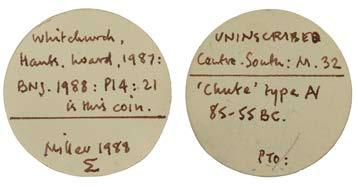 Whitchurch,
Hants. hoard, 1987:
BNJ. 1988: Pl4: 21
is this coin.
1988
Σ
UNINSCRIBED
Centre. South: M. 32
'Chute' type AV
85-55 BC.
PTO: